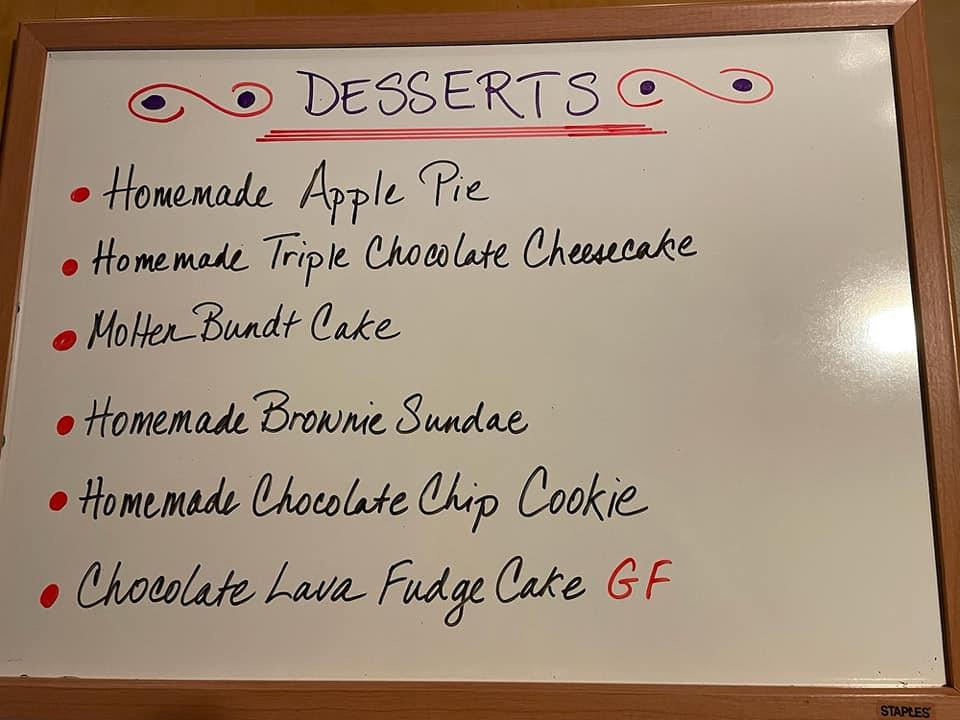 DESSERTS
• Homemade Apple Pie
• Homemade Triple Chocolate Cheesecake
• Molten Bundt Cake
• Homemade Brownie Sundae
• Homemade Chocolate Chip Cookie
• Chocolate Lava Fudge Cake GF
STAPLES